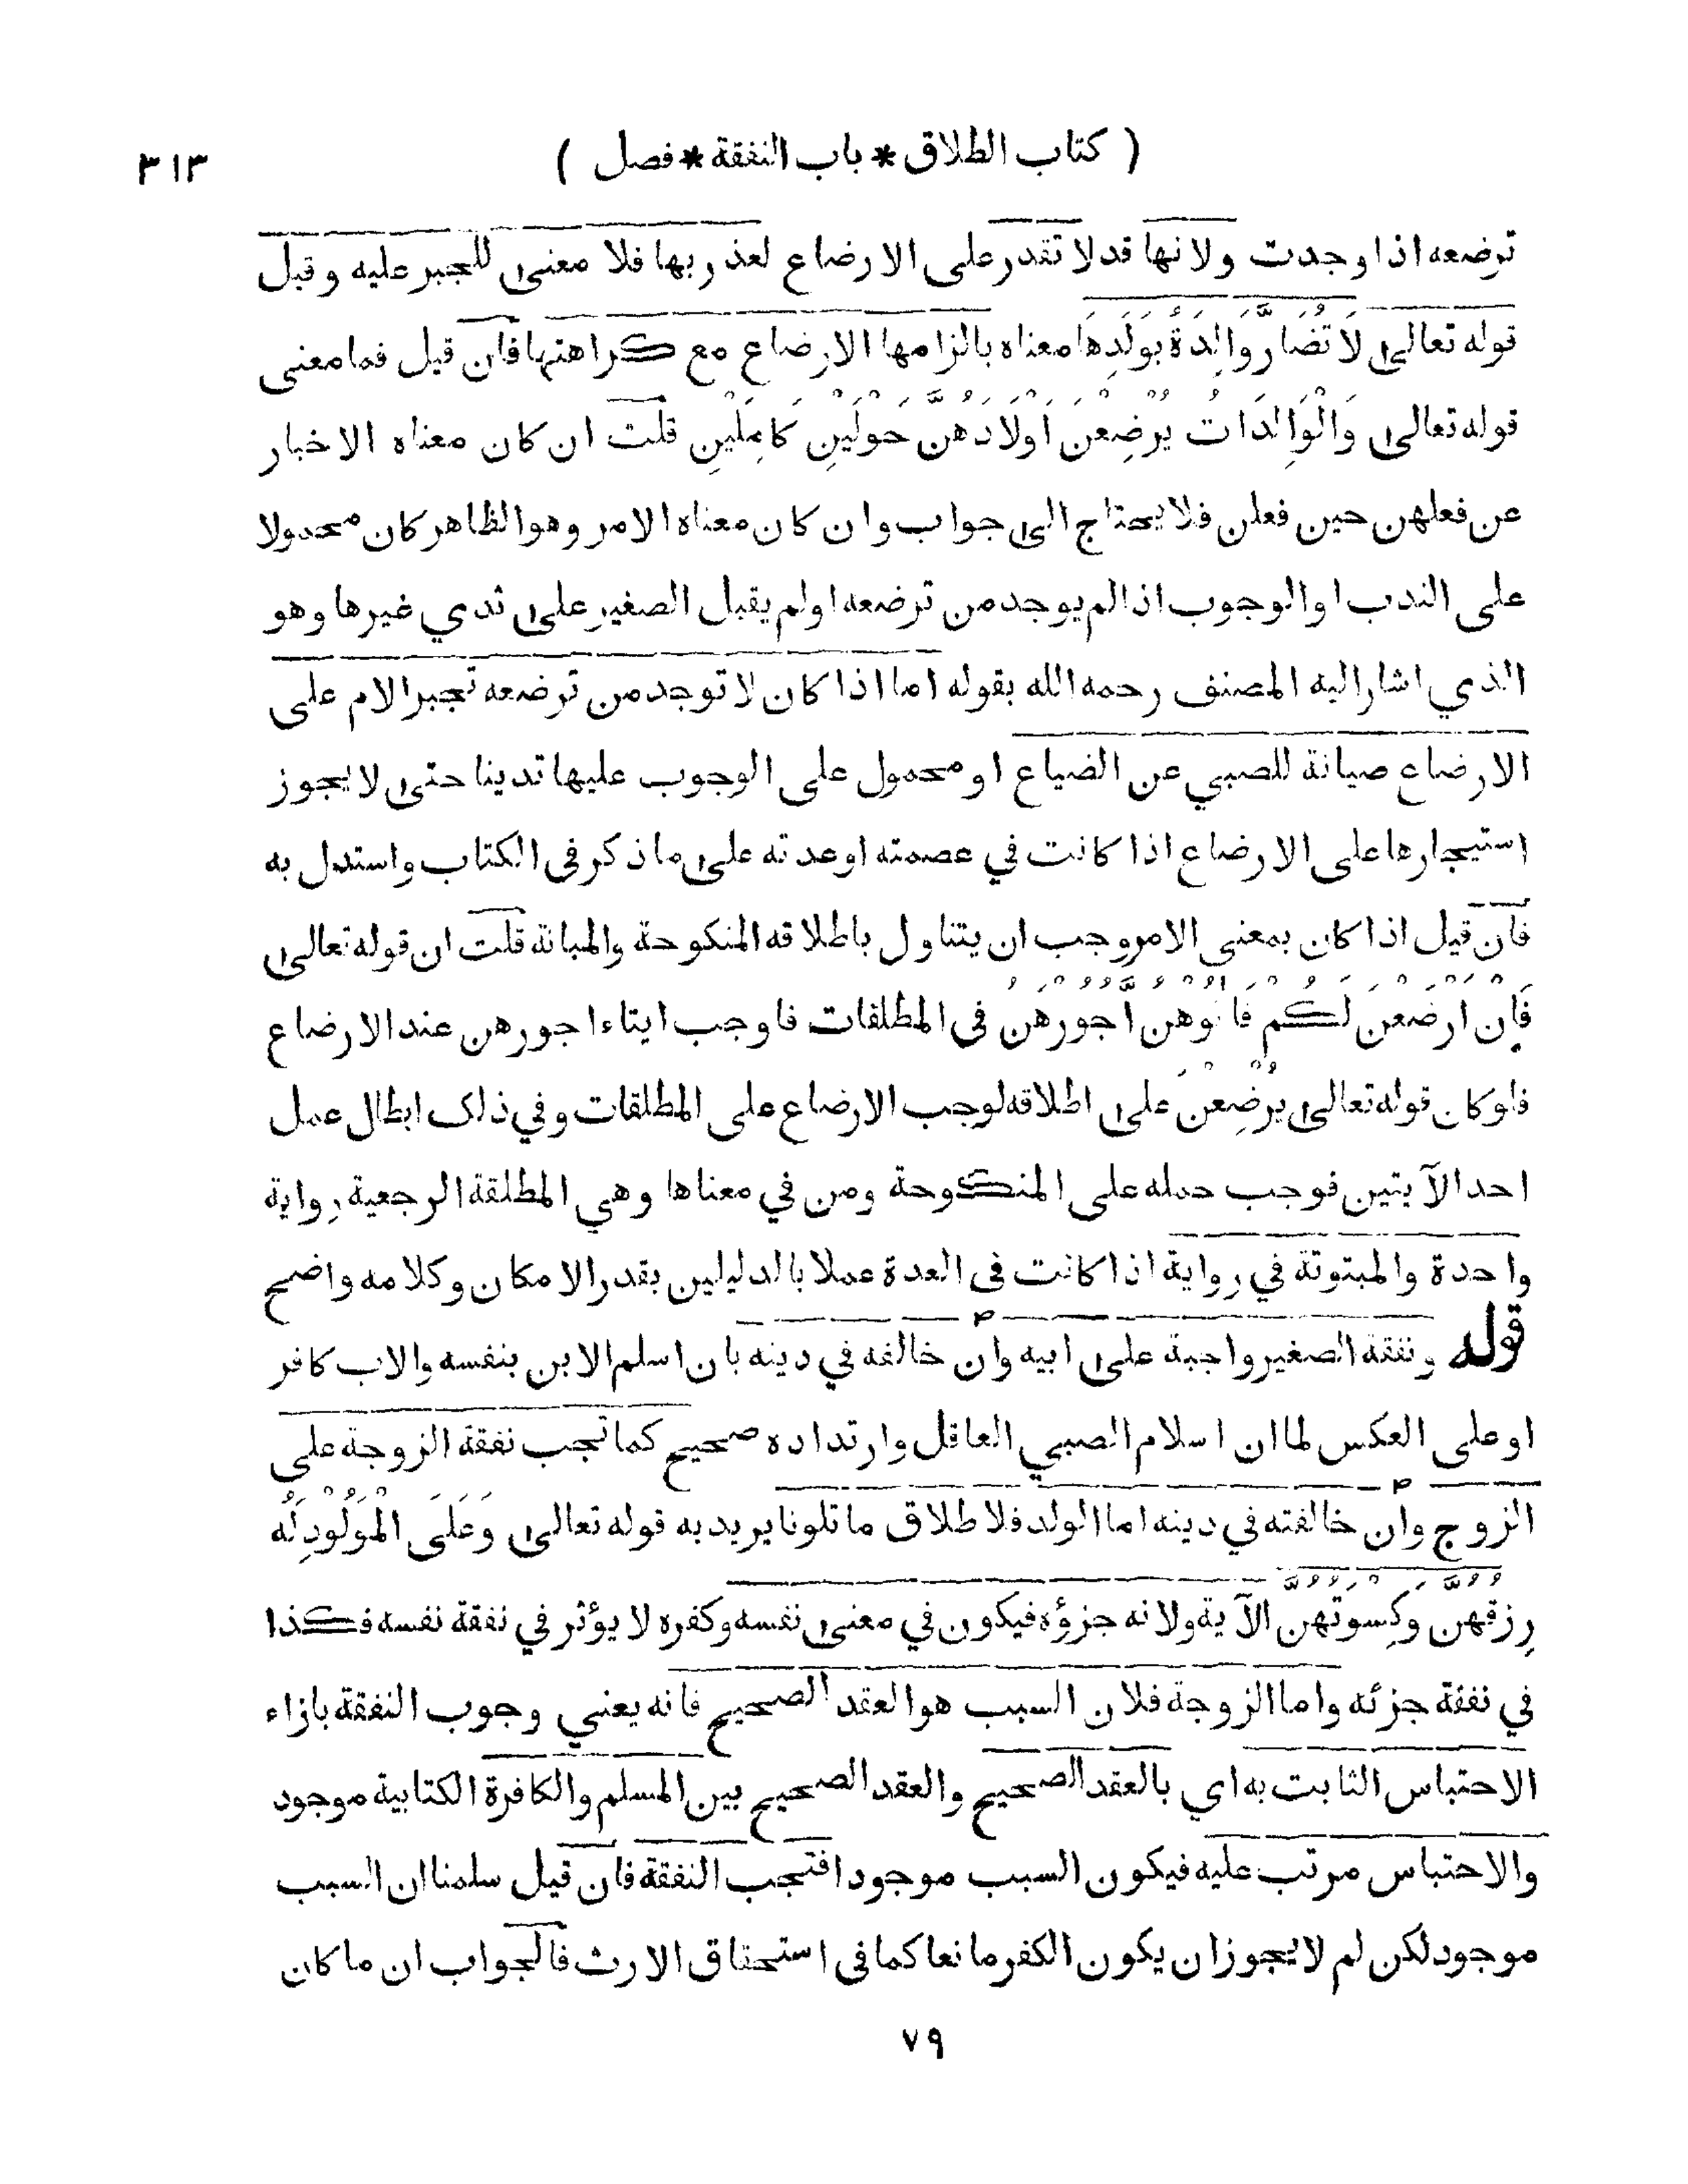 ( كتاب الطلاق * باب النفقة * فصل ) ٣١٣
ترضعه اذا وجدت ولانها قد لا تقدر على الارضاع لعذر بها فلا معنى للجبر عليه وقيل
قوله تعالى لَا تُضَارَّ وَالِدَةٌ بِوَلَدِهَا معناه بالزامها الارضاع مع كراهتها فان قيل فما معنى
قوله تعالى وَالْوَالِدَاتُ يُرْضِعْنَ اَوْلَادَهُنَّ حَوْلَيْنِ كَامِلَيْنِ قلت ان كان معناه الاخبار
عن فعلهن حين فعلن فلا يحتاج الى جواب وان كان معناه الامر وهو الظاهر كان محمولا
على الندب او الوجوب اذا لم يوجد من ترضعه او لم يقبل الصغير على ثدي غيرها وهو
الذي اشار اليه المصنف رحمه الله بقوله اما اذا كان لا توجد من ترضعه تجبر الام على
الارضاع صيانة للصبي عن الضياع او محمول على الوجوب عليها تدينا حتى لا يجوز
استيجارها على الارضاع اذا كانت في عصمته او عدته على ما ذكر في الكتاب واستدل به
فان قيل اذا كان بمعنى الامر وجب ان يتناول باطلاقه المنكوحة والمبانة قلت ان قوله تعالى
فَاِنْ اَرْضَعْنَ لَكُمْ فَاٰتُوْهُنَّ اُجُوْرَهُنَّ في المطلقات فاوجب ايتاء اجورهن عند الارضاع
فلو كان قوله تعالى يُرْضِعْنَ على اطلاقه لوجب الارضاع على المطلقات وفي ذلك ابطال عمل
احد الآيتين فوجب حمله على المنكوحة ومن في معناها وهي المطلقة الرجعية رواية
واحدة والمبتوتة في رواية اذا كانت في العدة عملا بالدليلين بقدر الامكان وكلامه واضح
قوله ونفقة الصغير واجبة على ابيه وان خالفه في دينه بان اسلم الابن بنفسه والاب كافر
او على العكس لما ان اسلام الصبي العاقل وارتداده صحيح كما تجب نفقة الزوجة على
الزوج وان خالفته في دينه اما الولد فلاطلاق ما تلونا يريد به قوله تعالى وَعَلَى الْمَوْلُوْدِ لَهُ
رِزْقُهُنَّ وَكِسْوَتُهُنَّ الآية ولانه جزؤه فيكون في معنى نفسه وكفره لا يؤثر في نفقة نفسه فكذا
في نفقة جزئه واما الزوجة فلان السبب هو العقد الصحيح فانه يعني وجوب النفقة بازاء
الاحتباس الثابت به اي بالعقد الصحيح والعقد الصحيح بين المسلم والكافرة الكتابية موجود
والاحتباس مرتب عليه فيكون السبب موجودا فتجب النفقة فان قيل سلمنا ان السبب
موجود لكن لم لا يجوز ان يكون الكفر مانعا كما في استحقاق الارث فالجواب ان ما كان
٧٩